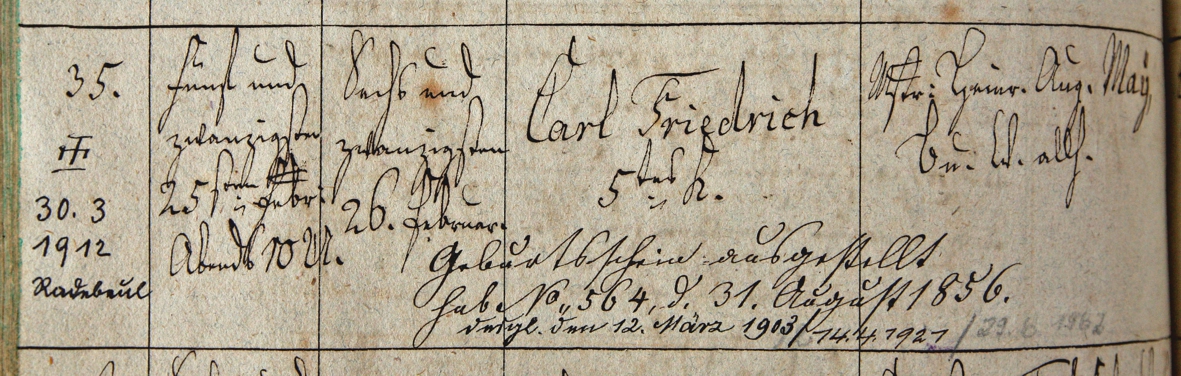 35.
30. 3
1912
Radebeul
Fünf und
zwanzigsten
25sten Febr:
Abends 10 U.
Sechs und
zwanzigsten
26. Februar.
Carl Friedrich
5tes K.
Mstr: Heinr. Aug. May,
Bu. W. allh.
Geburtsschein ausgestellt
habe No. 564, d. 31. August 1856.
desgl. den 12. März 1903 / 14.4.1921 / 29.6 1962